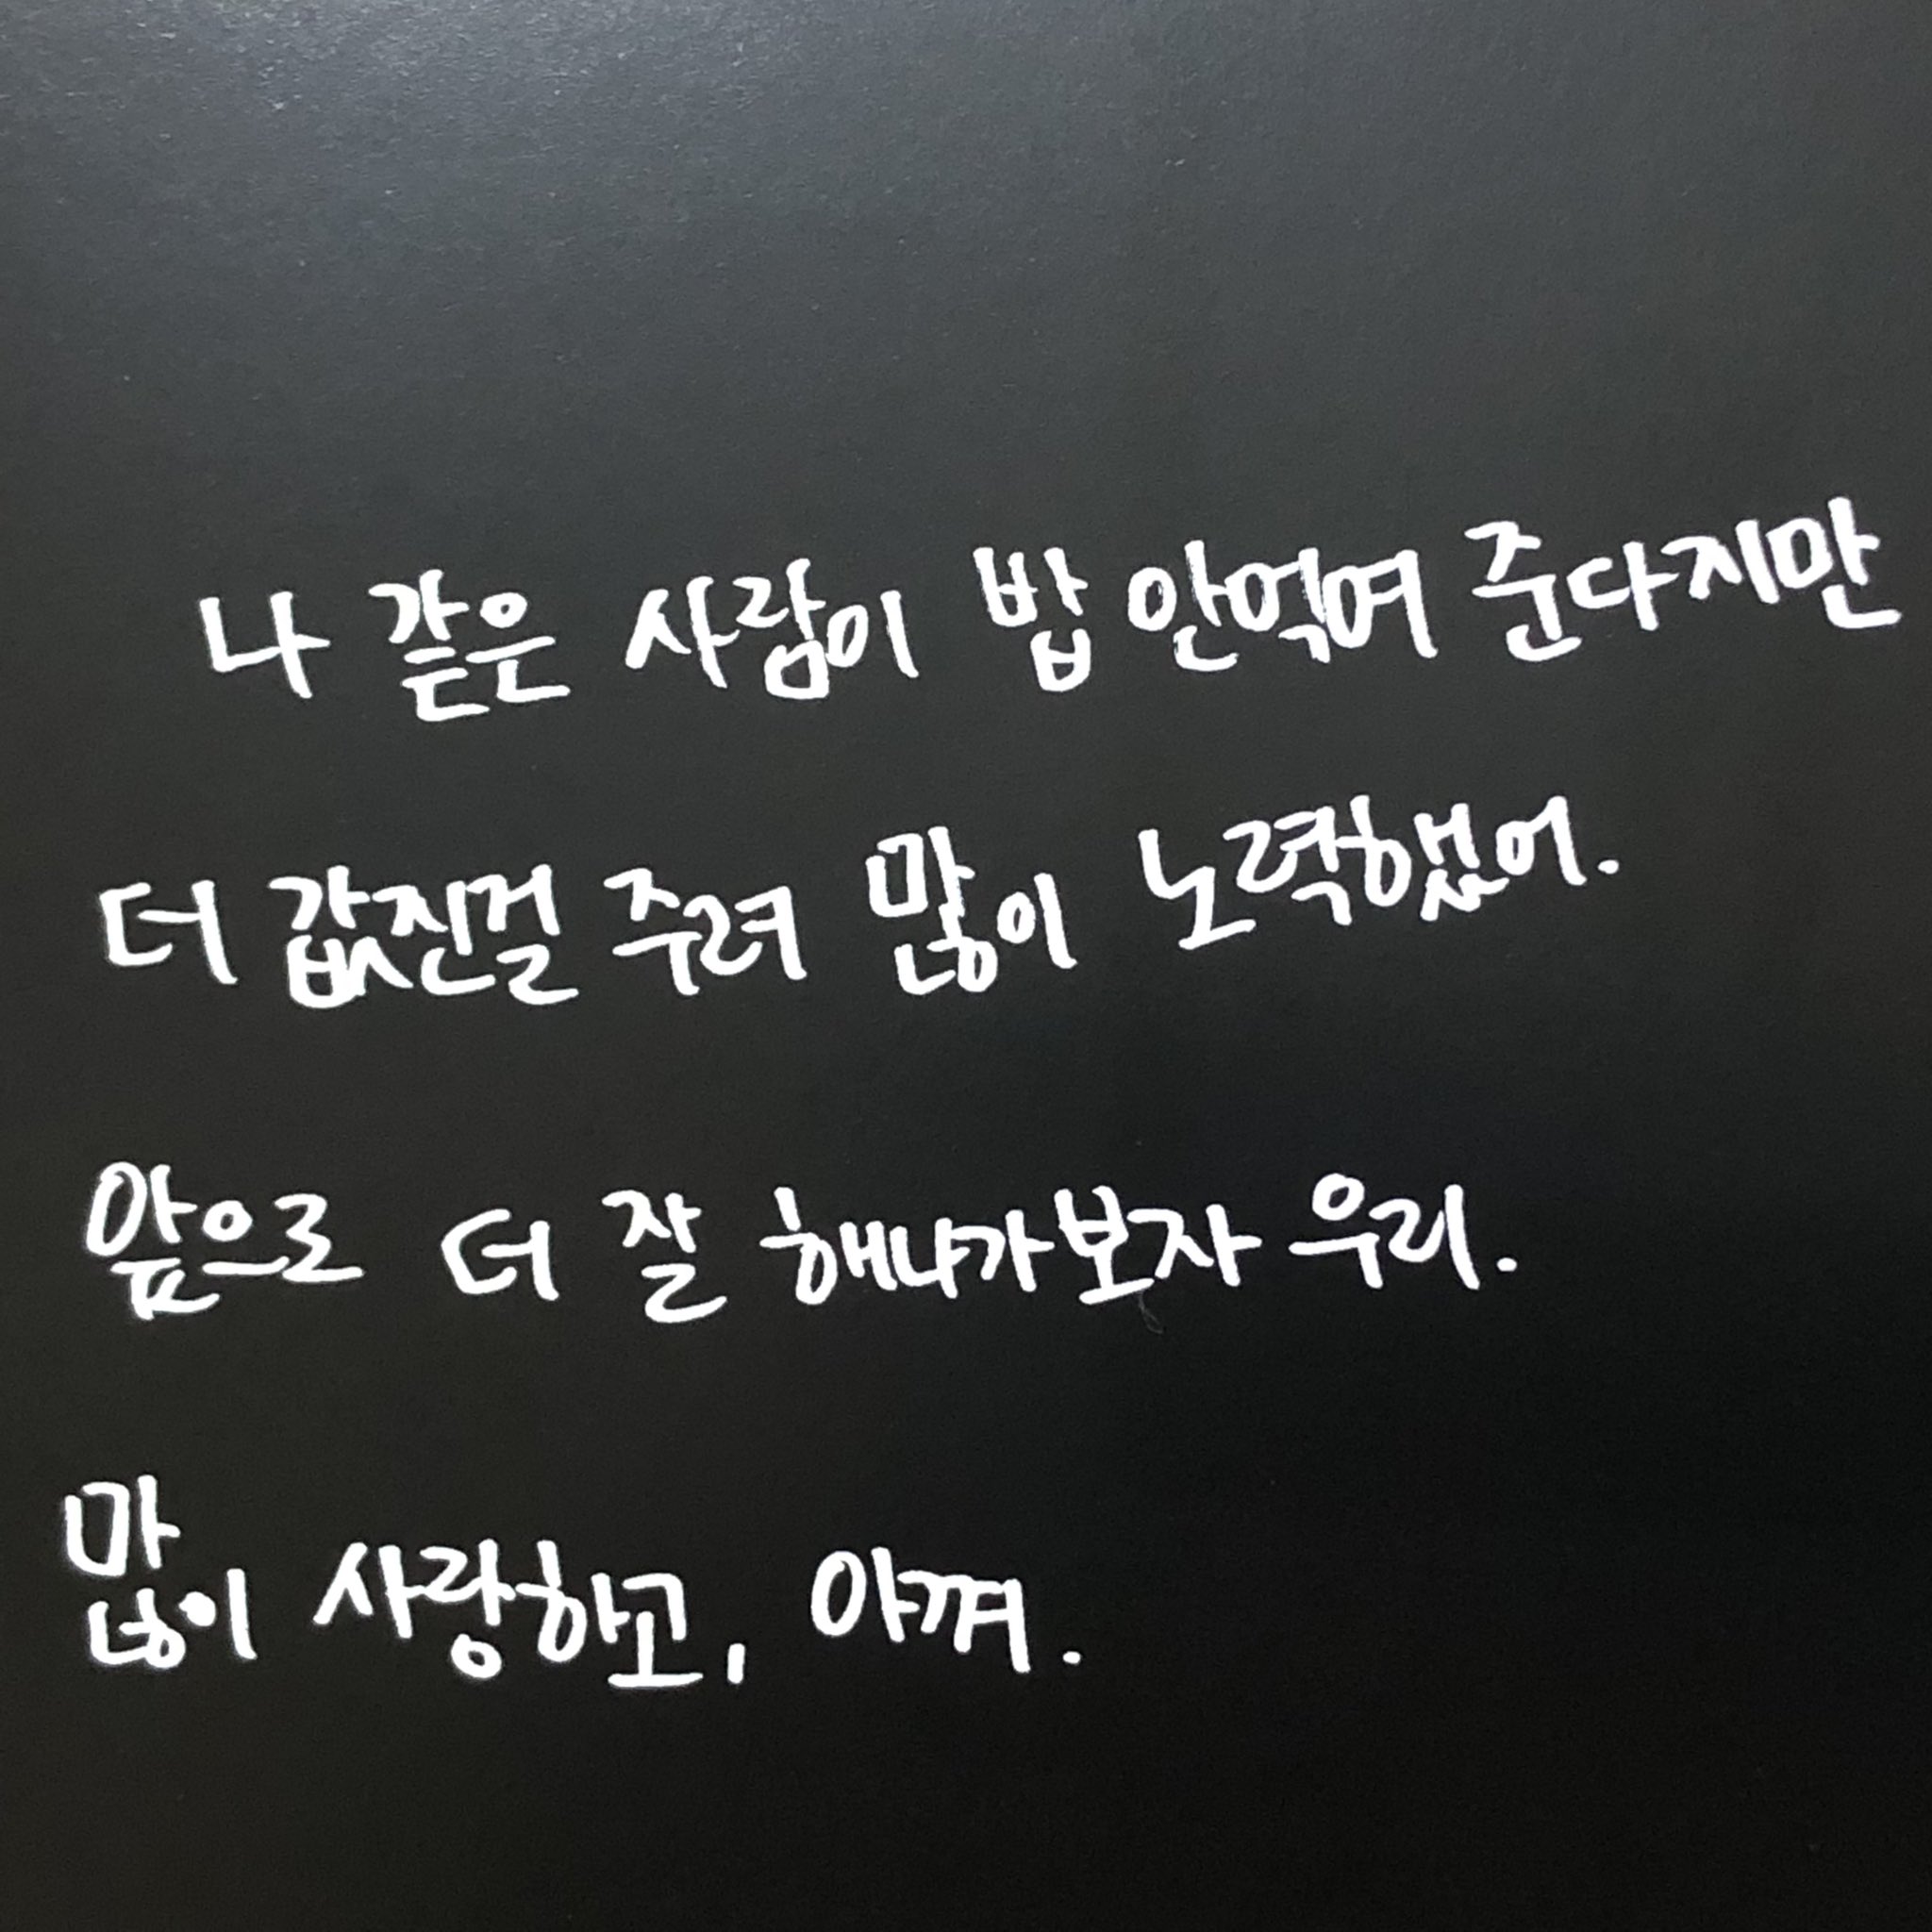 나 같은 사람이 밥 안먹여 준다지만
더 값진걸 주려 많이 노력했어.
앞으로 더 잘 해나가보자 우리.
많이 사랑하고, 아껴.